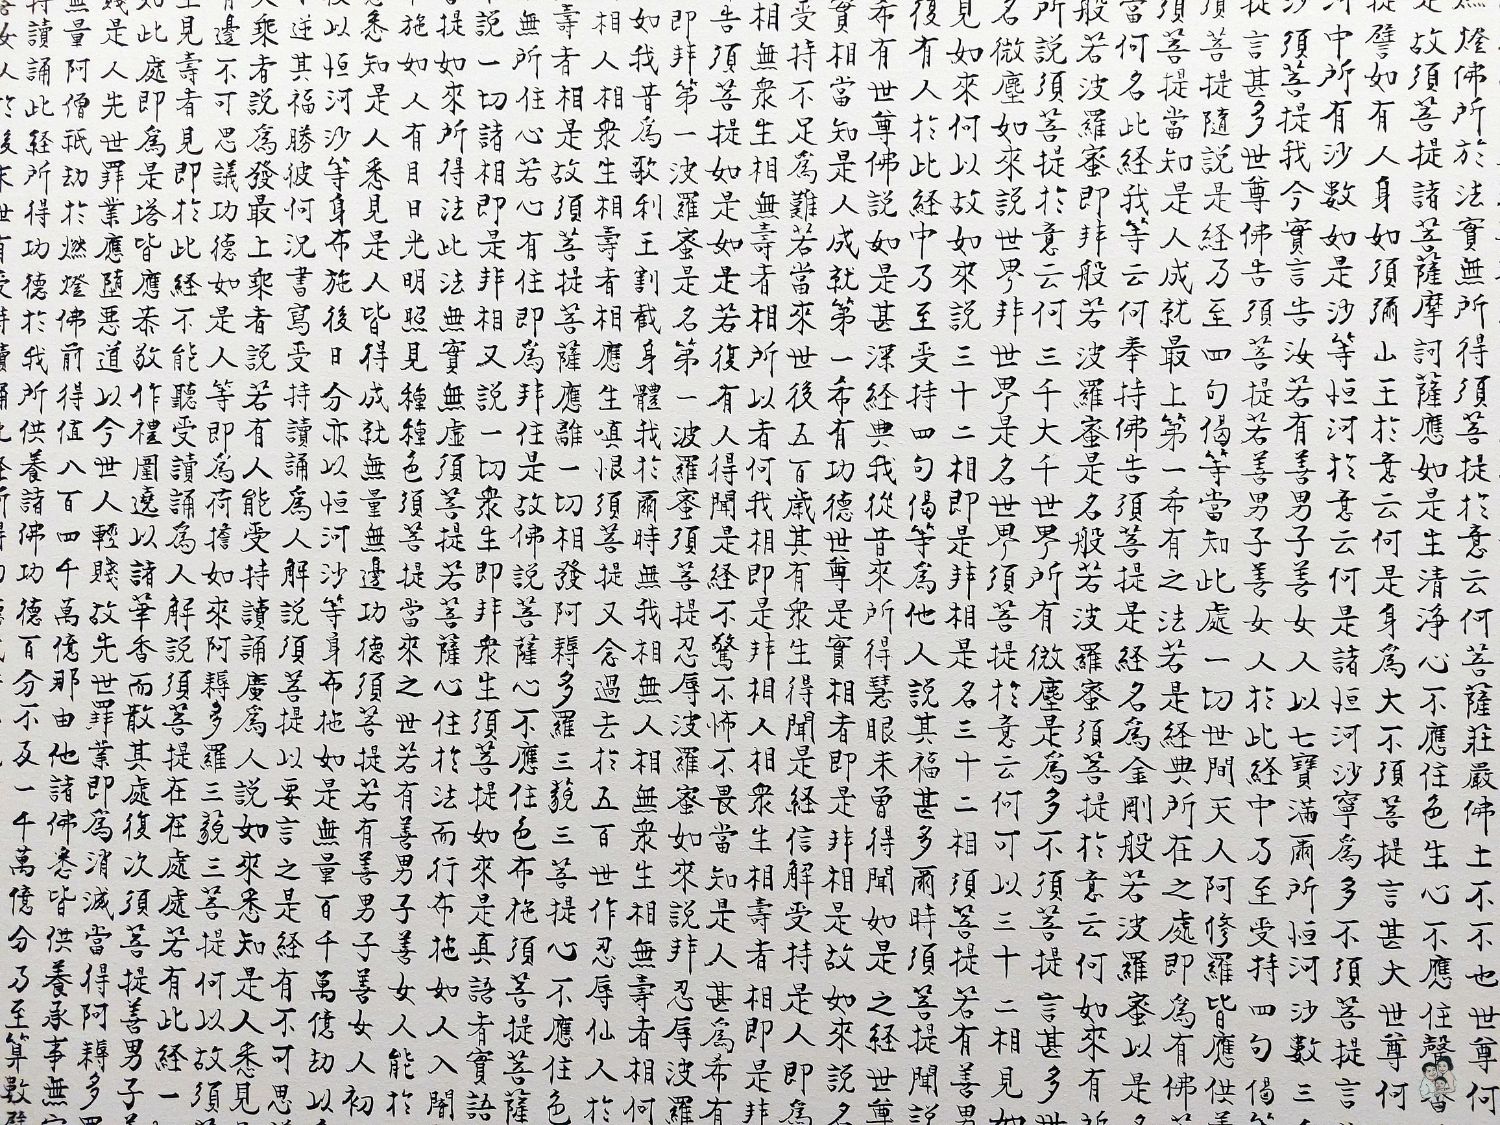 燃燈佛所於法實無所得須菩提於意云何菩薩莊嚴佛土不不也世尊何
是故須菩提諸菩薩摩訶薩應如是生清淨心不應住色生心不應住聲香
提譬如有人身如須彌山王於意云何是身為大不須菩提言甚大世尊何
河中所有沙數如是沙等恒河於意云何是諸恒河沙寧為多不須菩提言
沙須菩提我今實言告汝若有善男子善女人以七寶滿爾所恒河沙數三
提言甚多世尊佛告須菩提若善男子善女人於此経中乃至受持四句偈等
須菩提隨說是経乃至四句偈等當知此處一切世間天人阿修羅皆應供養
須菩提當知是人成就最上第一希有之法若是経典所在之處即為有佛若
當何名此経我等云何奉持佛告須菩提是経名為金剛般若波羅蜜以是名
般若波羅蜜即非般若波羅蜜是名般若波羅蜜須菩提於意云何如來有所
所說須菩提於意云何三千大千世界所有微塵是為多不須菩提言甚多世
名微塵如來說世界非世界是名世界須菩提於意云何可以三十二相見如
見如來何以故如來說三十二相即是非相是名三十二相須菩提若有善男
復有人於此経中乃至受持四句偈等為他人說其福甚多爾時須菩提聞說
希有世尊佛說如是甚深経典我從昔來所得慧眼未曾得聞如是之経世尊
實相當知是人成就第一希有功德世尊是實相者即是非相是故如來說名
受持不足為難若當來世後五百歲其有衆生得聞是経信解受持是人即為
相無衆生相無壽者相所以者何我相即是非相人相衆生相壽者相即是非
告須菩提如是如是若復有人得聞是経不驚不怖不畏當知是人甚為希有
即非第一波羅蜜是名第一波羅蜜須菩提忍辱波羅蜜如來說非忍辱波羅
如我昔為歌利王割截身體我於爾時無我相無人相無衆生相無壽者相何
相人相衆生相壽者相應生嗔恨須菩提又念過去於五百世作忍辱仙人於
壽者相是故須菩提菩薩應離一切相發阿耨多羅三藐三菩提心不應住色
無所住心若心有住即為非住是故佛說菩薩心不應住色布施須菩提菩薩
說一切諸相即是非相又說一切衆生即非衆生須菩提如來是真語者實語
提如來所得法此法無實無虛須菩提若菩薩心住於法而行布施如人入闇
施如人有目日光明照見種種色須菩提當來之世若有善男子善女人能於
悉知是人悉見是人皆得成就無量無邊功德須菩提若有善男子善女人初
以恒河沙等身布施後日分亦以恒河沙等身布施如是無量百千萬億劫以
逆其福勝彼何況書寫受持讀誦為人解說須菩提以要言之是経有不可思
大乘者說為發最上乘者說若有人能受持讀誦廣為人說如來悉知是人悉見
邊不可思議功德如是人等即為荷擔如來阿耨多羅三藐三菩提何以故須
見壽者見即於此経不能聽受讀誦為人解說須菩提在在處處若有此経一
如此處即為是塔皆應恭敬作禮圍遶以諸華香而散其處復次須菩提善男子
賤是人先世罪業應墮惡道以今世人輕賤故先世罪業即為消滅當得阿耨多
無量阿僧祇劫於燃燈佛前得值八百四千萬億那由他諸佛悉皆供養承事無
持讀誦此経所得功德於我所供養諸佛功德百分不及一千萬億分乃至算數譬
女人於後末世有受持讀誦